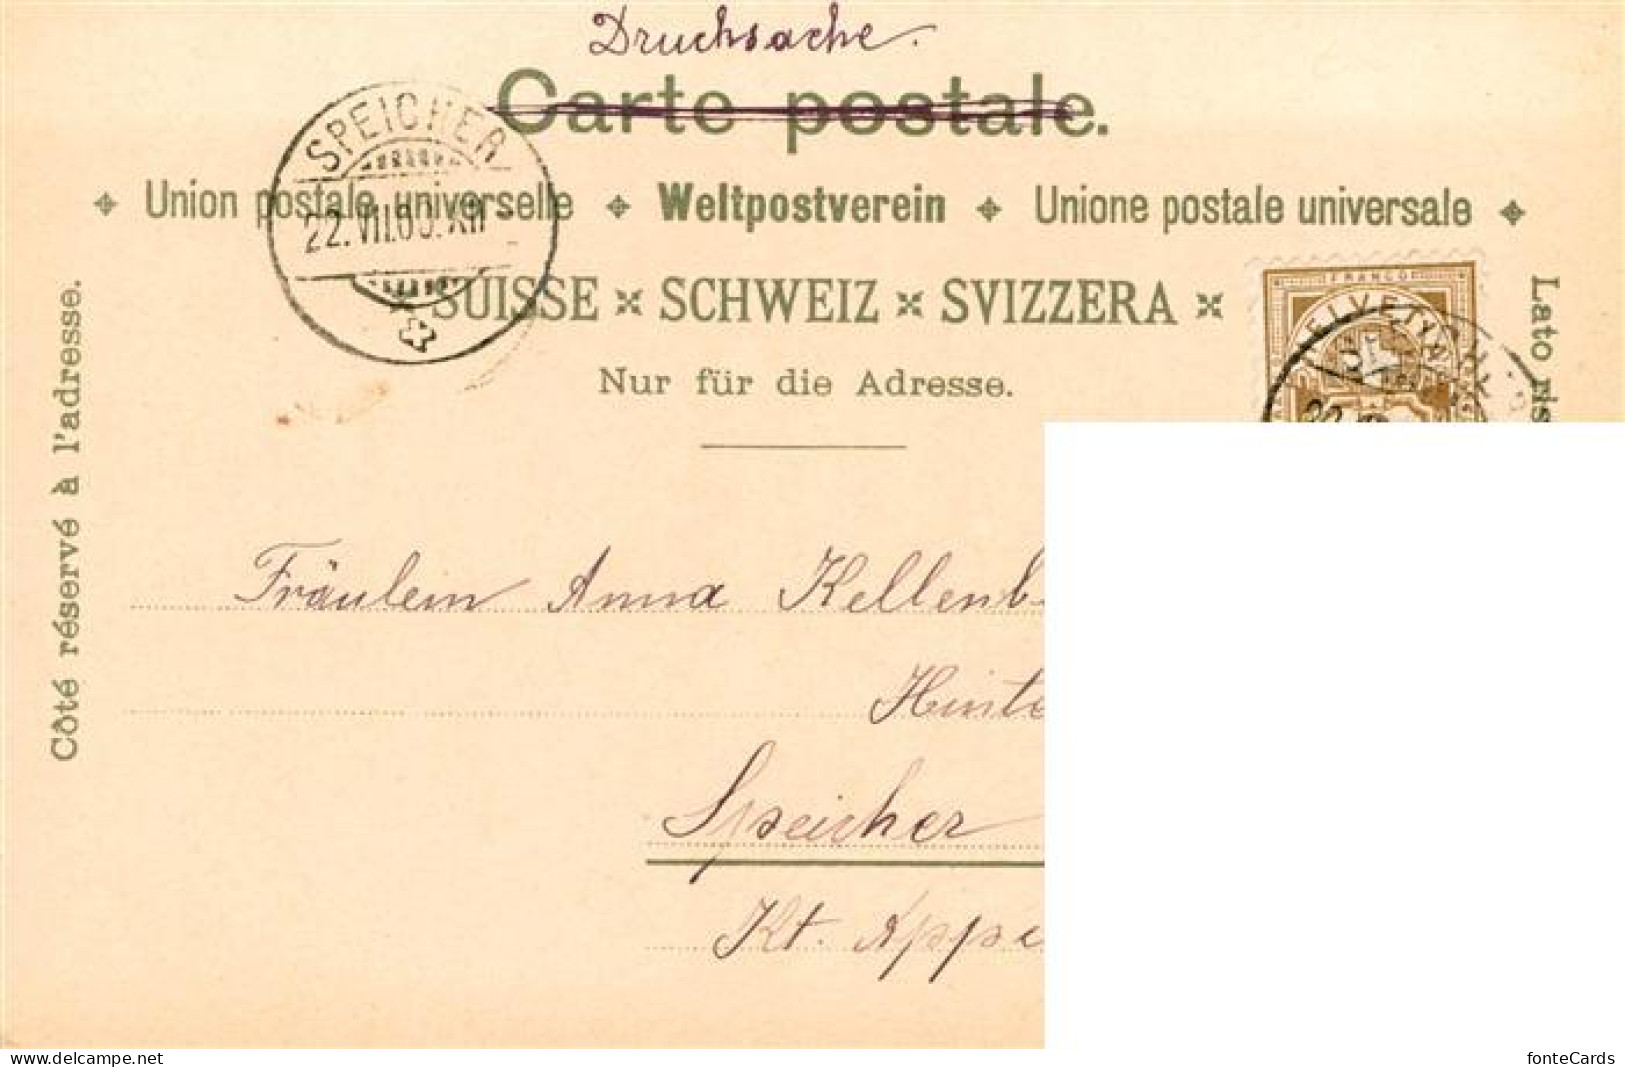 Drucksache.
Carte postale.
Union postale universelle Weltpostverein Unione postale universale
SUISSE SCHWEIZ SVIZZERA
Nur für die Adresse.
Côté réservé à l'adresse.
Lato ris
SPEICHER
22.VII.
FRANCO
HELVETIA
Fräulein Anna Kellenb
Hinte
Speicher
Kt. Appe
www.delcampe.net
fonteCards